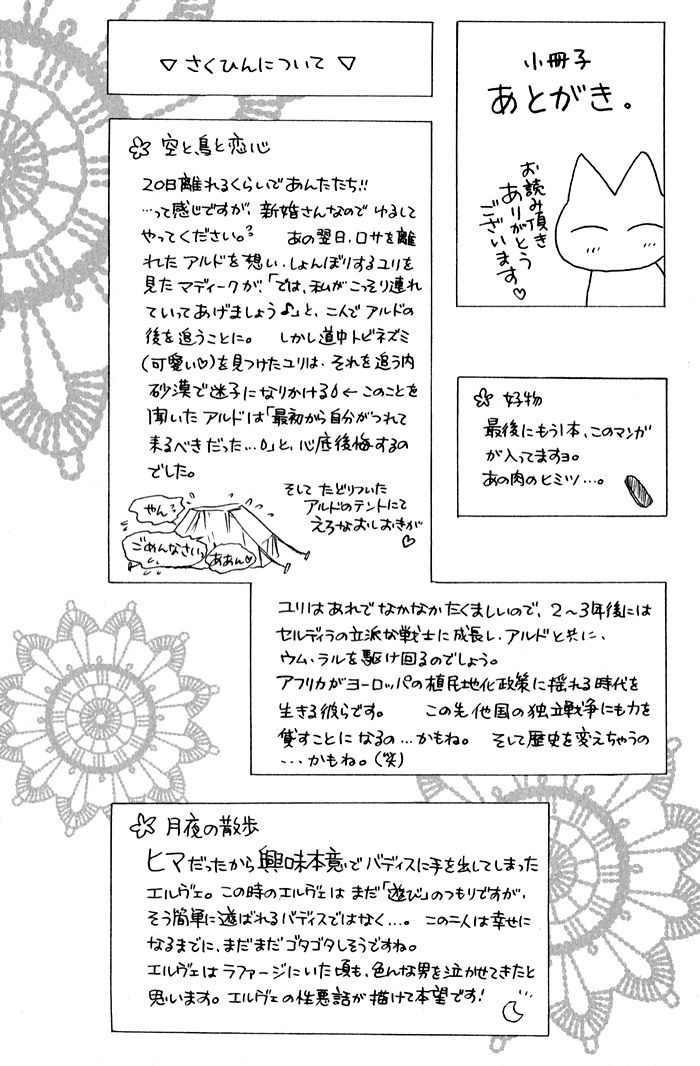 小冊子
あとがき。
お読み頂き
ありがとう
ございます♡
▽ さくひんについて ▽
空と鳥と恋心
20日離れるくらいであんたたち!!
…って感じですが、新婚さんなので ゆるして
やってください。 あの翌日、ロサを離
れたアルドを想い、しょんぼりするユリを
見たマディークが、「では、私がこっそり連れ
ていってあげましょう♪」と、二人でアルドの
後を追うことに。 しかし道中トビネズミ
(可愛い♡)を見つけたユリは、それを追う内
砂漠で迷子になりかける ← このことを
聞いたアルドは「最初から自分がつれて
来るべきだった…」と、心底後悔するの
でした。
そして たどりついた
アルドのテントにて
えろなおしおきが
♡
やん?
ごめんなさいっ
ああん♡
ユリはあれでなかなかたくましいので、2〜3年後には
セルディラの立派な戦士に成長し、アルドと共に、
ウム、ラルを駆け回るのでしょう。
アフリカがヨーロッパの植民地化政策に揺れる時代を
生きる彼らです。 この先他国の独立戦争にも力を
貸すことになるの…かもね。 そして歴史を変えちゃうの
…かもね。(笑)
好物
最後にもう1本、このマンガ
が入ってますヨ。
あの肉のヒミツ…。
月夜の散歩
ヒマだったから興味本意でバディスに手を出してしまった
エルヴェ。この時のエルヴェは まだ「遊び」のつもりですが、
そう簡単に遊ばれるバディスではなく…。 この二人は幸せに
なるまでに、まだまだゴタゴタしそうですね。
エルヴェはラファージにいた頃も、色んな男を泣かせてきたと
思います。エルヴェの性悪話が描けて本望です!